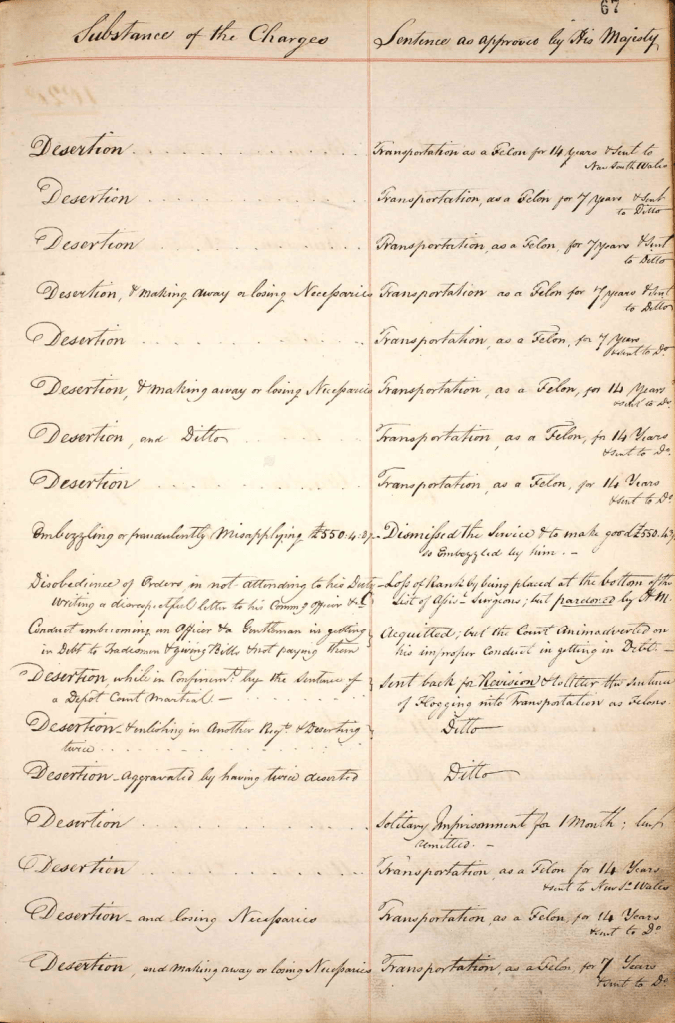 67
Substance of the Charges
Sentence as approved by His Majesty
Desertion . . . . . . . . . . . . Transportation as a Felon for 14 years & sent to
New South Wales
Desertion . . . . . . . . . . . . Transportation, as a Felon for 7 years & sent
to Ditto
Desertion . . . . . . . . . . . . Transportation, as a Felon, for 7 years & sent
to Ditto
Desertion, & making away or losing Necessaries Transportation as a Felon for 7 years & sent
to Ditto
Desertion . . . . . . . . . . . . Transportation, as a Felon, for 7 Years
& sent to Do.
Desertion, & making away or losing Necessaries Transportation, as a Felon, for 14 Years
& sent to Do.
Desertion, and Ditto . . . . . . Transportation, as a Felon, for 14 Years
& sent to Do.
Desertion . . . . . . . . . . . . Transportation, as a Felon, for 14 Years
& sent to Do
Embezzling or fraudulently Misapplying £550:4: Dismissed the Service & to make good £550.4
so Embezzled by him. -
Disobedience of Orders, in not attending to his Duty
Writing a disrespectful letter to his Commg Officer &c
Loss of Rank by being placed at the bottom of the
List of Assist. Surgeons; but pardoned by H.M.
Conduct unbecoming an Officer & a Gentleman in getting
in Debt to Tradesmen & giving Bills & not paying them
Acquitted; but the Court Animadverted on
his improper Conduct in getting in Debt. -
Desertion, while in Confinemt. by the Sentence of
a Depot Court Martial -
Sent back for Revision & to Alter the Sentence
of Flogging into Transportation as Felons
Desertion - & enlisting in Another Regt. & Deserting
twice . . . . . .
Ditto
Desertion - aggravated by having twice deserted
Ditto
Desertion . . . . . . . . . . . . Solitary Imprisonment for 1 Month;
remitted. -
Desertion . . . . . . . . . . . . Transportation, as a Felon for 14 Years
& sent to New So. Wales
Desertion - and losing Necessaries Transportation, as a Felon, for 14 Years
& sent to Do
Desertion, and making away or losing Necessaries Transportation, as a Felon, for 7 Years
& sent to Do.